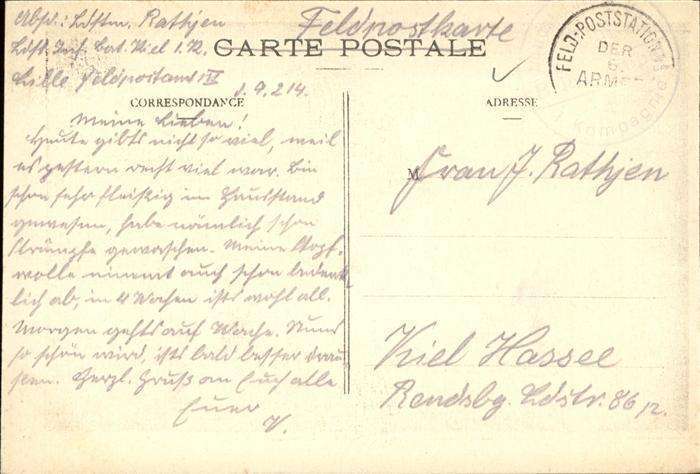 Absd.: Ldstm. Rathjen
Ldst. Inf. Bat. Kiel 1. K.
Lille Feldpostamt IV
Feldpostkarte
CARTE POSTALE
FELD-POSTSTATION
DER
6.
ARMEE
Kompagnie
CORRESPONDANCE
ADRESSE
Meine Lieben!
Heute gibts nicht so viel, weil
es gestern recht viel war. Bin
schon sehr fleißig im Hausstand
gewesen, habe nämlich schon
Strümpfe gewaschen. Meine Stopf-
wolle nimmt auch schon bedenk-
lich ab, in 4 Wochen ists wohl all.
Morgen gehts auf Wache. Nun
so schön wird, ists bald besser drau
ßen. Herzl. Gruß an Euch alle
Euer
M Frau J. Rathjen
Kiel Hassee
Rendsbg. Ldstr. 86